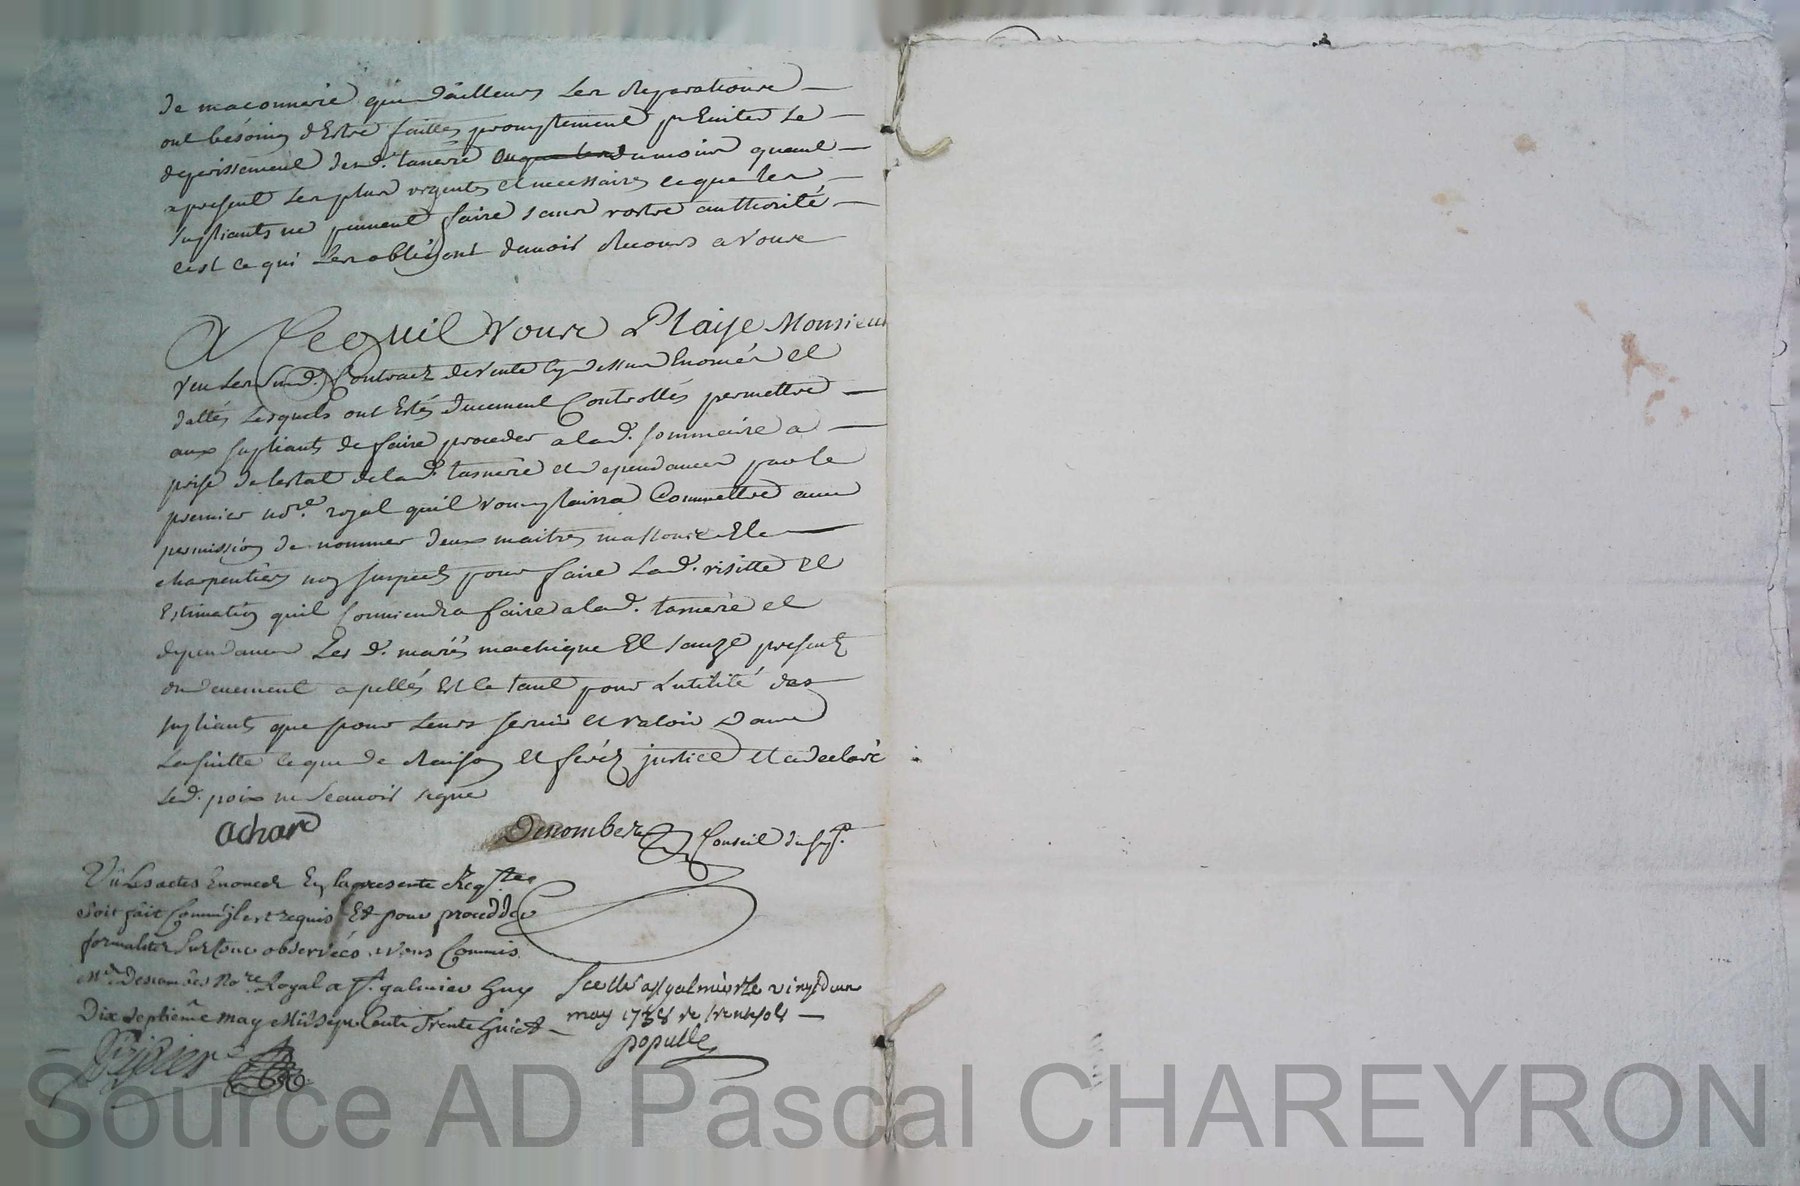 de maconnerie que dailleurs Les Reparations
ont besoing d'Estre faittes promptement pr Eviter Le
deperissement de lad. tanerie du moins quant
a present Les plus urgentes et necessaires ce que les
supliants ne peuvent faire sans vostre authorité
c'est ce qui Les obligent davoir Recours a vous
A Ce quil Vous Plaise Monsieur
veu Les susd. Contracts de vente cy dessus Enoncés et
dattés Lesquels ont Estés duement Controllés permettre
aux supliants de faire proceder a lad. sommaire a
prise de lestat de lad. tannerie et dependances par le
premier nore. royal quil vous plairra Commettre avec
permission de nommer deux maitres massons et
charpentiers non suspects pour faire Lad. visitte et
Estimation quil Conviendra faire a lad. tannerie et
dependances Les d. mariés machique et sauze presents
ou duement apellés Et ce tant pour Lutilité des
supliants que pour Leurs servir et valoir dans
La suitte ce que de Raison Et ferés justice et a declaré
Led. poix ne scavoir signe
achard
Desombez Conseil du sup.
Vû Les actes Enoncez En la presente Reqte
soit fait Comme il est requis Et pour proceder
formalites Sur ce observées avons Commis
Me. Desombes Nore. Royal a St. galmier
Dix septieme may Mil sept Cents Trente huict
Scellé a St galmier le vingt deux
may 1738 re trente sols
populle
Source AD Pascal CHAREYRON